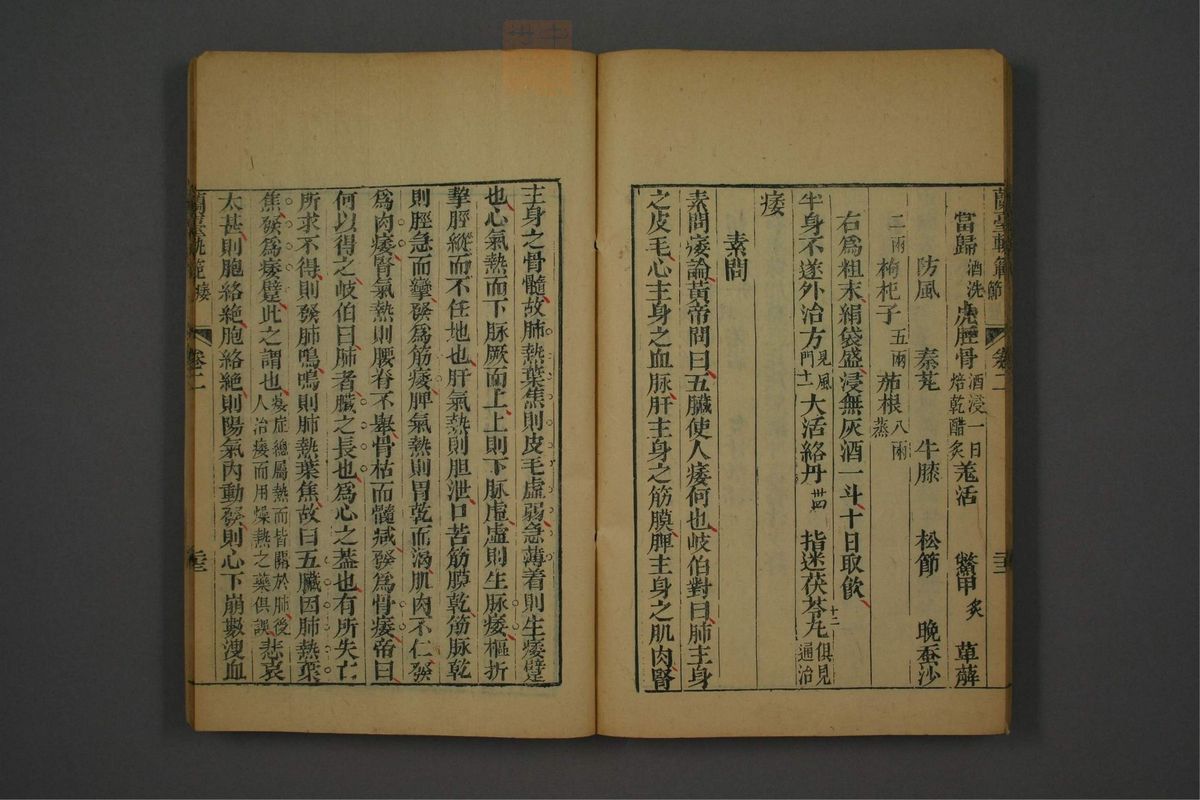 蘭臺軌範 節
當歸酒洗 虎脛骨酒浸一日焙乾醋炙 羗活 鱉甲炙 萆薢
防風 秦艽 牛膝 松節 晚蚕沙
二兩 枸杞子五兩 茄根八兩蒸
右為粗末絹袋盛浸無灰酒一斗十日取飲
半身不遂外治方見風門十一 大活絡丹卌四 指迷茯苓丸十二俱見通治
痿
素問
素問痿論黃帝問曰五臟使人痿何也岐伯對曰肺主身
之皮毛心主身之血脉肝主身之筋膜脾主身之肌肉腎
卷二
主身之骨髓故肺熱葉焦則皮毛虛弱急薄着則生痿躄
也心氣熱而下脉厥而上上則下脉虛虛則生脉痿樞折
挈脛縱而不任地也肝氣熱則胆泄口苦筋膜乾筋脉乾
則脛急而攣發為筋痿脾氣熱則胃乾而渴肌肉不仁發
為肉痿腎氣熱則腰脊不舉骨枯而髓減發為骨痿帝曰
何以得之岐伯曰肺者臟之長也為心之蓋也有所失亡
所求不得則發肺鳴鳴則肺熱葉焦故曰五臟因肺熱葉
焦發為痿躄此之謂也痿症總屬熱而皆關於肺後人治痿而用燥熱之藥俱誤悲哀
太甚則胞絡絕胞絡絕則陽氣內動發則心下崩數溲血
蘭臺軌範 痿
卷二